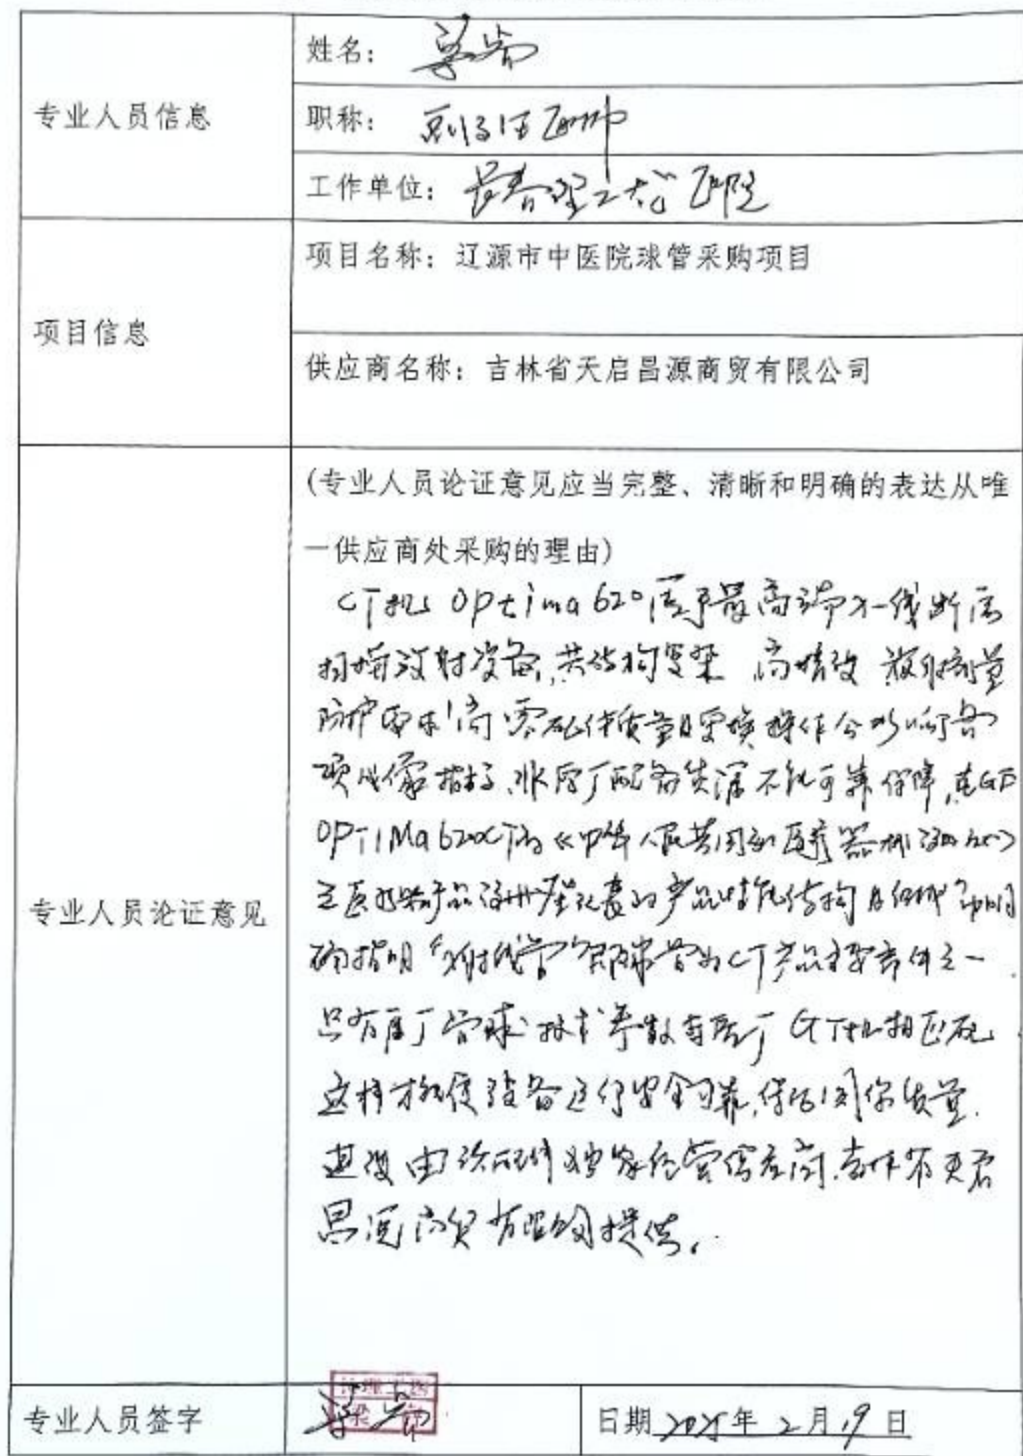 专业人员信息
姓名：
职称：副主任医师
工作单位：长春理工大学医院
项目信息
项目名称：辽源市中医院球管采购项目
供应商名称：吉林省天启昌源商贸有限公司
专业人员论证意见
(专业人员论证意见应当完整、清晰和明确的表达从唯
一供应商处采购的理由)
CT机 Optima 620 属于最高端X-线断层
扫描放射设备,其结构复杂 高精致 放射剂量
防护要求高 零配件质量及更换操作会影响各
项成像指标,非原厂配备货源不能可靠保障,
OPTIMa 620CT的《中华人民共和国医疗器械
产品性能结构及组成
确指明"X射线管"即球管为CT产品主要部件之一
只有原厂管球技术参数与原厂CT机相匹配
这样才能使设备运行安全可靠,保证图像质量.
由该配件独家经营供应商.吉林省天启
昌源商贸有限公司提供.
专业人员签字
日期 年 2 月 19 日